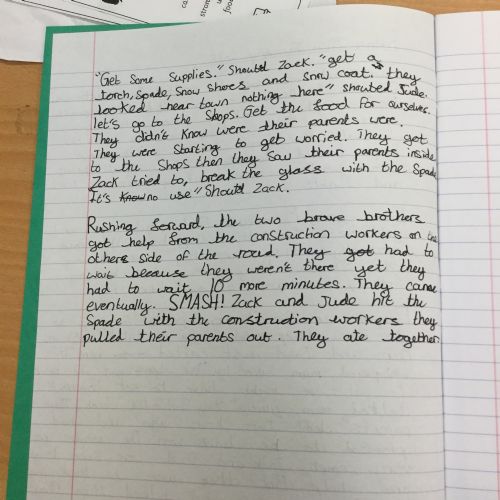 "Get Some Supplies." Shoutd Zack. "get a
torch, Spade, Snow shoes and snow coat. they
looked near town nothing here" shouted Jude.
let's go to the shops. Get the food for ourselves.
They didn't know were their parents were.
They were starting to get worried. They got
to the shops then they saw their parents inside
Zack tried to, break the glass with the Spade
It's know no use" Shoutd Zack.
Rushing forward, the two brave brothers
got help from the construction workers on the
others side of the road. They got had to
wait because they weren't there yet they
had to wait 10 more minutes. They came
eventually. SMASH! Zack and Jude hit the
Spade with the construction workers they
pulled their parents out. They ate together